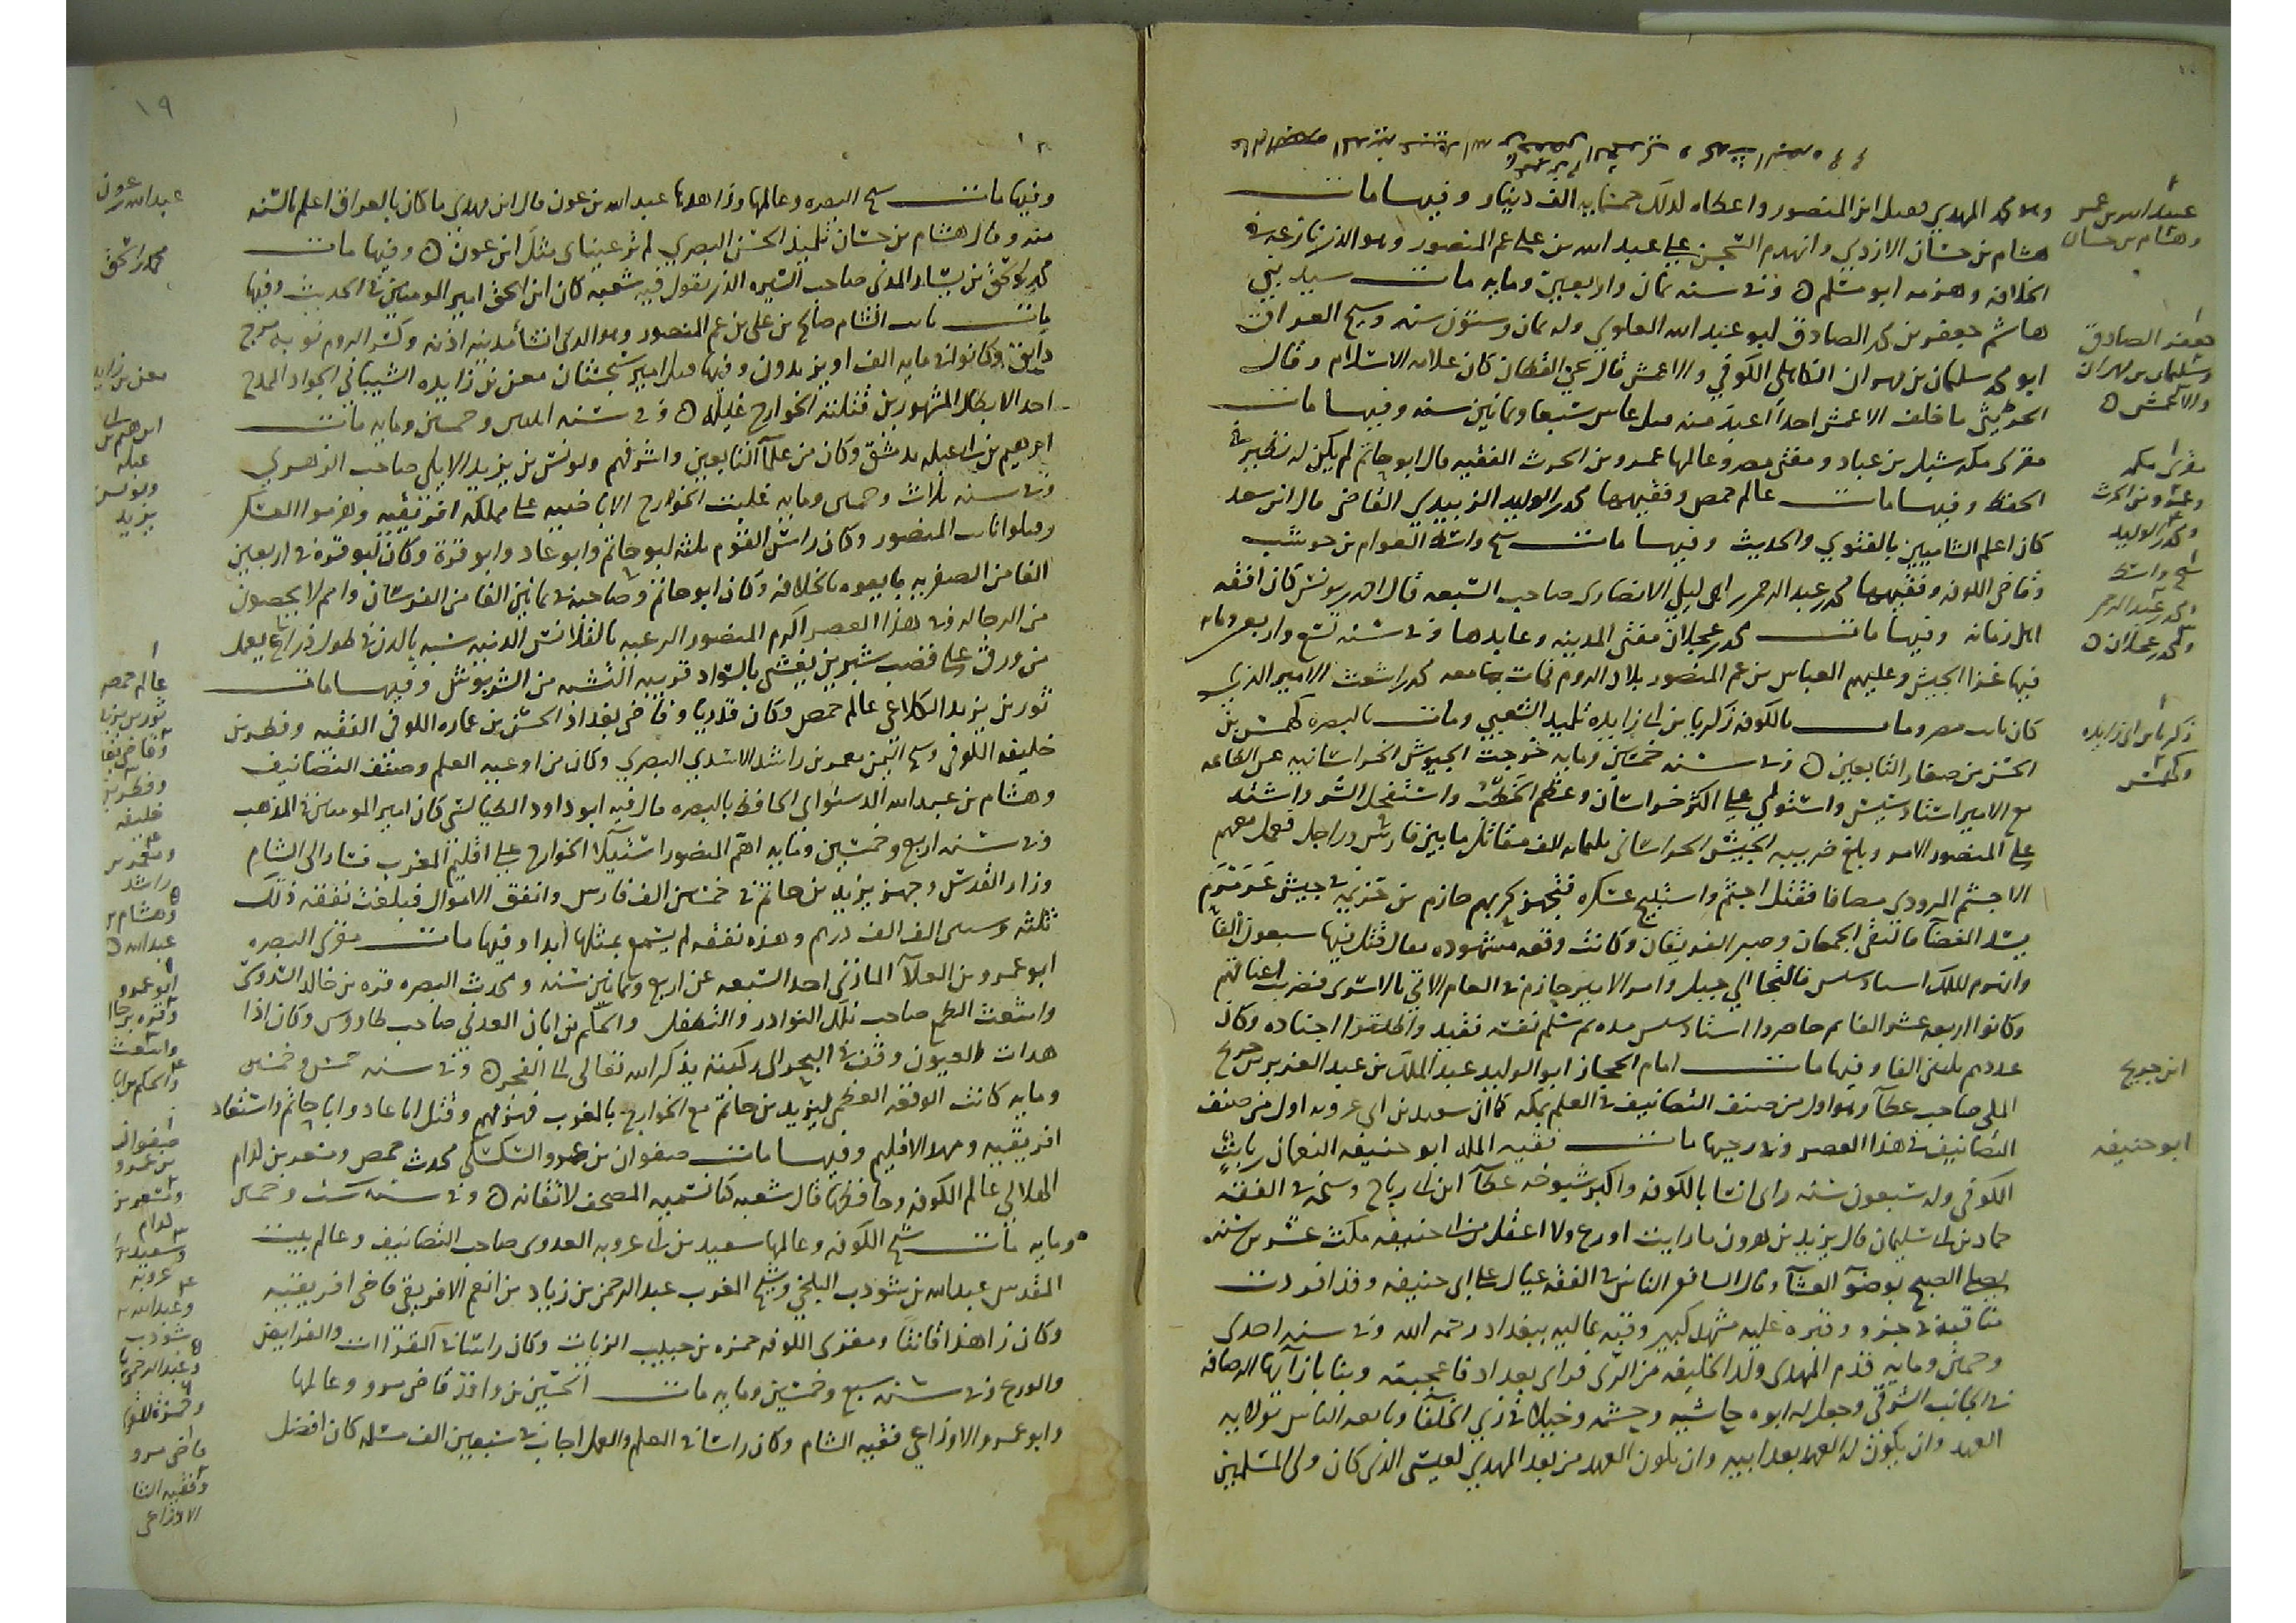 وهو محمد المهدي قبل ابن المنصور واعطاه لذلك خمسمايه الف دينار وفيها مات
هشام بن حسان الازدي وانهدم السجن على عبد الله بن علي عم المنصور وهو الذي نازعه في
الخلافه وهزمه ابو مسلم ٥ وفي سنه ثمان واربعين ومايه مات سيد بني
هاشم جعفر بن محمد الصادق ابو عبد الله العلوي وله ثمان وستون سنه وشيخ العراق
ابو محمد سليمان بن مهران الكاهلي الكوفي والاعمش قال يحيى القطان كان علامه الاسلام وقال
الخريبي ما خلف الاعمش احدا اعبد منه قيل عاش سبعا وثمانين سنه وفيها مات
مقرى مكه شبل بن عباد ومفتى مصر وعالمها عمرو بن الحرث الفقيه قال ابو حاتم لم يكن له نظير في
الحفظ وفيها مات عالم حمص وفقيهها محمد بن الوليد الزبيدي القاضي قال ابن سعد
كان اعلم الشاميين بالفتوي والحديث وفيها مات شيخ واسط العوام بن حوشب
وقاضي الكوفه وفقيهها محمد بن عبد الرحمن بن ابي ليلى الانصارى صاحب الشعبه قال احمد بن يونس كان افقه
اهل زمانه وفيها مات محمد بن عجلان مفتى المدينه وعابدها وفي سنه تسع واربعين ومايه
فيها غزا الجيش وعليهم العباس بن عم المنصور بلاد الروم فمات معه محمد بن اشعث الامير الذي
كان نائب مصر ومات بالكوفه زكريا بن ابي زايده تلميذ الشعبي ومات بالبصره كهمس بن
الحسن من صغار التابعين ٥ وفي سنه خمسين ومايه خرجت الجيوش الخراسانيه عن الطاعه
مع الامير استاد سيس واستولي على اكثر خراسان وعظم الخطب واستفحل الشر واشتد
على المنصور الامر وبلغ ضريبه الجيش الخراساني ثلثمايه الف مقاتل ما بين فارس وراجل فعمل معهم
الاجثم المرودى مصافا فقتل اجثم واستبيح عسكره فتجهز لحربهم حازم بن خزيمه في جيش عرمرم
يسد الفضا فالتقى الجمعان وصبر الفريقان وكانت وقعه مشهوده يقال قتل فيها سبعون الفا
وانهزم الملك استادسيس فالتجا الي جبل وامر الامير حازم في العام الاتي بالاسرى فضربت اعناقهم
وكانوا اربعه عشر الفا ثم حاصروا استادسيس مده ثم سلم نفسه فقيد واطلقوا اجناده وكان
عددهم ثلثين الفا وفيها مات امام الحجاز ابو الوليد عبد الملك بن عبد العزيز بن جريج
المكي صاحب عطا وهو اول من صنف التصانيف في العلم بمكه كما ان سعيد بن ابي عروبه اول من صنف
التصانيف في هذا العصر وفي رجبها مات فقيه المله ابو حنيفه النعمان بن ثابت
الكوفي وله سبعون سنه راى انسا بالكوفه واكبر شيوخه عطا ابن ابي رباح وشيخه في الفقه
حماد بن ابي سليمان قال يزيد بن هرون ما رايت اورع ولا اعقل من ابي حنيفه مكث عشرين سنه
يصلي الصبح بوضو العشا وقال الشافعي الناس في الفقه عيال على ابي حنيفه وقد افردت
مناقبه في جزو وقبره عليه مشهد كبير وقبه عاليه ببغداد رحمه الله وفي سنه احدى
وخمسين ومايه قدم المهدى ولد الخليفه من الرى فراى بغداد فاعجبته وبنا بازايها الرصافه
في الجانب الشرقي وجعل له ابوه حاشيه وحشمه وخيلا في زى الخلفا وبايعه الناس بولايه
العهد وان يكون له العهد بعد ابيه وان يكون العهد من بعد المهدي لعيسى الذى كان ولي المسلمين
عبيد الله بن عمر
وهشام بن حسان
جعفر الصادق
وسليمان بن مهران
والاعمش ٥
مقرى مكه
وعمرو بن الحرث
ومحمد بن الوليد
شيخ واسط
ومحمد بن عبد الرحمن
ومحمد بن عجلان ٥
زكريا بن ابي زايده
وكهمس
ابن جريج
ابو حنيفه
١٩
وفيها مات شيخ البصره وعالمها وزاهدها عبد الله بن عون قال ابن مهدى ما كان بالعراق اعلم بالسنه
منه وقال هشام بن حسان تلميذ الحسن البصري لم تر عيناى مثل ابن عون ٥ وفيها مات
محمد بن اسحق بن يسار المدني صاحب السيره الذى يقول فيه شعبه كان ابن اسحق امير المومنين في الحديث وفيها
مات نايب الشام صالح بن علي بن عم المنصور وهو الذى انشا مدينه اذنه وكسر الروم نوبه مرج
دابق وكانوا في مايه الف او يزيدون وفيها قتل امير سجستان معن بن زايده الشيباني الجواد الممدح
احد الابطال المشهورين قتلته الخوارج غيله ٥ وفي سنه اثنين وخمسين ومايه مات
ابرهيم بن ابي عبله بدمشق وكان من علما التابعين واشرفهم ويونس بن يزيد الايلي صاحب الزهري
وفي سنه ثلاث وخمسين ومايه غلبت الخوارج الاباضيه على مملكه افريقيه وهزموا العسكر
وقتلوا نايب المنصور وكان راس القوم ثلثه ابو حاتم وابو عاد وابو قرة وكان ابو قرة في اربعين
الفا من الصفريه بايعوه بالخلافه وكان ابو حاتم وصاحبه في ثمانين الفا من الفرسان وامم لا يحصون
من الرجاله وفي هذا العصر الزم المنصور الرعيه بالقلانس الدنيه شبه بالدن في طول ذراع يعمل
من ورق على قضيب شيرين يغشى بالسواد قريبه الشبه من الشربوش وفيها مات
ثور بن يزيد الكلاعي عالم حمص وكان قدريا وقاضي بغداد الحسن بن عماره الكوفي الفقيه وفطر بن
خليفه الكوفي وشيخ اليمن معمر بن راشد الازدي البصري وكان من اوعيه العلم وصنف التصانيف
وهشام بن عبد الله الدستواى الحافظ بالبصره قال فيه ابو داود الطيالسي كان امير المومنين في المذهب
وفي سنه اربع وخمسين ومايه اهم المنصور استيلا الخوارج على اقليم المغرب فسار الى الشام
وزار القدس وجهز يزيد بن حاتم في خمسين الف فارس وانفق الاموال فبلغت نفقه ذلك
ثلثه وستين الف الف درهم وهذه نفقه لم يسمع بمثلها ابدا وفيها مات مقرى البصره
ابو عمرو بن العلا المازني احد السبعه عن اربع وثمانين سنه ومحدث البصره قره بن خالد السدوسي
واشعث الطمع صاحب تلك النوادر والتطفل والحكم بن ابان العدني صاحب طاووس وكان اذا
هدات العيون وقف في البحر الى ركبته يذكر الله تعالى الى الفجر ٥ وفي سنه خمس وخمسين
ومايه كانت الوقعه العظمى ليزيد بن حاتم مع الخوارج بالمغرب فهزمهم وقتل ابا عاد وابا حاتم واستعاد
افريقيه ومهد الاقليم وفيها مات صفوان بن عمرو السكسكي محدث حمص ومسعر بن كدام
الهلالي عالم الكوفه وحافظها قال شعبه كنا نسميه المصحف لاتقانه ٥ وفي سنه ست وخمسين
ومايه مات شيخ الكوفه وعالمها سعيد بن ابي عروبه العدوى صاحب التصانيف وعالم بيت
المقدس عبد الله بن شوذب البلخي وشيخ المغرب عبد الرحمن بن زياد بن انعم الافريقي قاضي افريقيه
وكان زاهدا قانتا ومقرى الكوفه حمزه بن حبيب الزيات وكان راسا في القراات والفرايض
والورع وفي سنه سبع وخمسين ومايه مات الحسين بن واقد قاضي مرو وعالمها
وابو عمرو الاوزاعي فقيه الشام وكان راسا في العلم والعمل اجاب في سبعين الف مسئله كان افضل
عبد الله بن عون
محمد بن اسحق
معن بن زايده
ابرهيم بن ابي
عبله
ويونس بن
يزيد
عالم حمص
ثور بن يزيد
وفطر بن
خليفه
ومعمر بن
راشد
وهشام بن
عبد الله ٥
ابو عمرو
وقره بن خالد
واشعث
والحكم بن ابان
صفوان
بن عمرو
ومسعر بن
كدام
وسعيد بن ابي
عروبه
وعبد الله بن
شوذب
وعبد الرحمن
قاضي مرو
وفقيه الشام
الاوزاعي